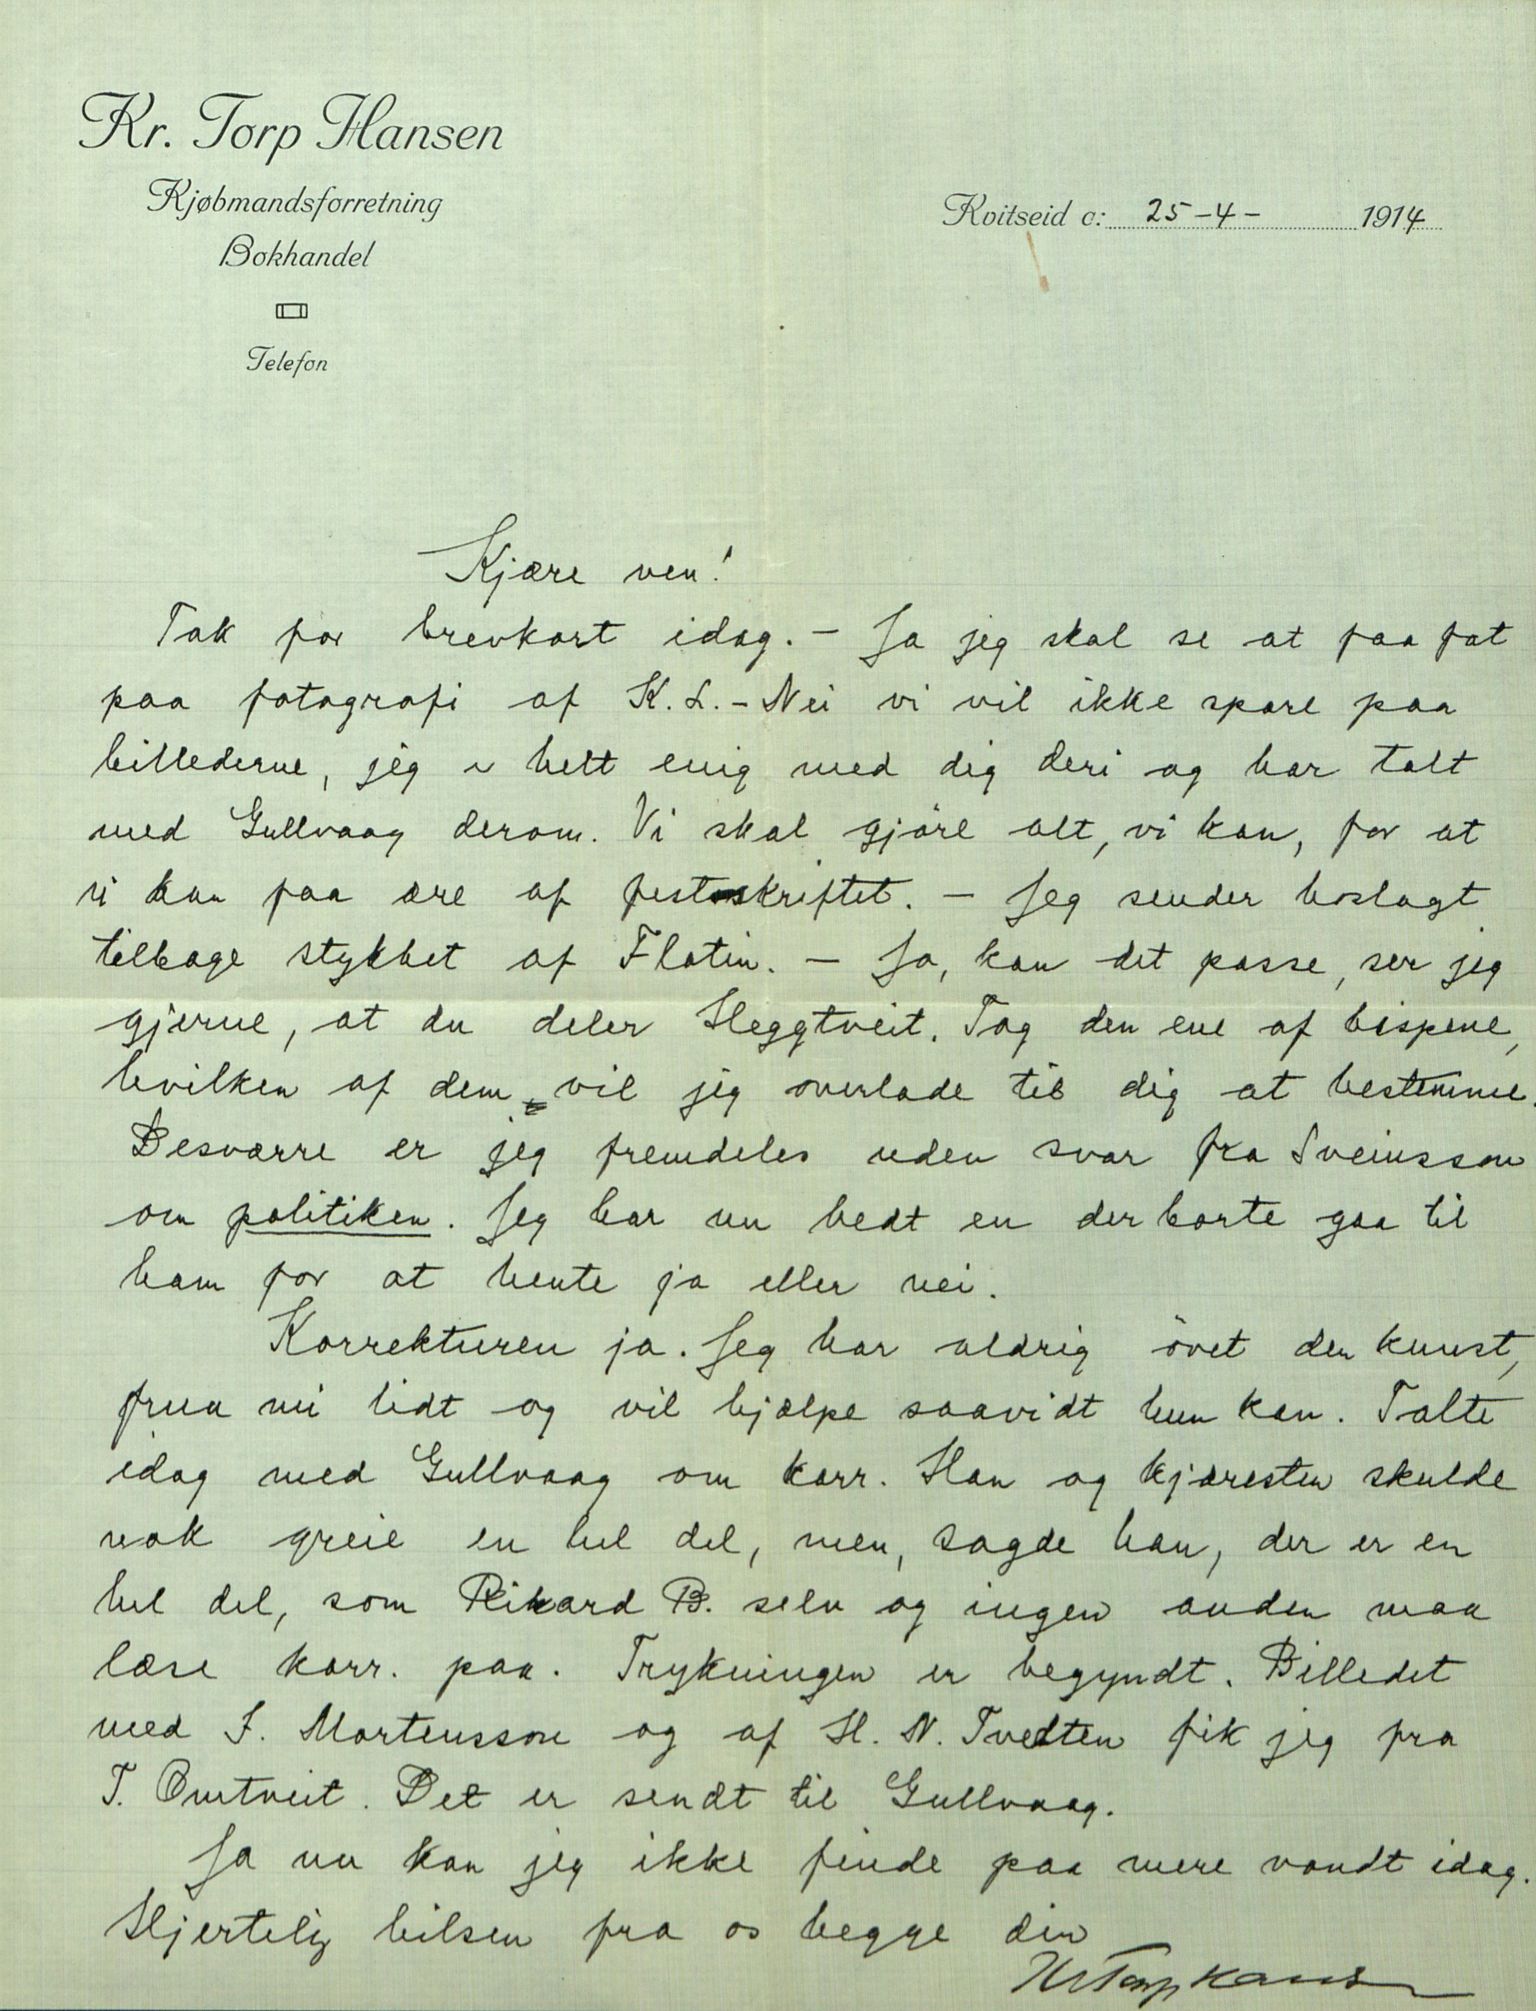 Kr. Torp Hansen
Kjøbmandsforretning
Bokhandel
Telefon
Kvitseid c: 25-4- 1914
Kjære ven!
Tak for brevkort idag. – Ja jeg skal se at faa fat
paa fotografi af K. L. – Nei vi vil ikke spare paa
billederne, jeg er helt enig med dig deri og har talt
med Gullvaag derom. Vi skal gjöre alt, vi kan, for at
vi kan faa ære af festskriftet. – Jeg sender hoslagt
tilbage stykket af Flatin. – Ja, kan det passe, ser jeg
gjerne, at du deler Heggtveit. Tag den ene af bispene,
hvilken af dem vil jeg overlade til dig at bestemme.
Desværre er jeg fremdeles uden svar fra Sveinsson
om politiken. Jeg har nu bedt en der borte gaa til
ham for at hente ja eller nei.
Korrekturen ja. Jeg har aldrig övet den kunst,
frua mi lidt og vil hjælpe saavidt hun kan. Talte
idag med Gullvaag om korr. Han og kjæresten skulde
nok greie en hel del, men, sagde han, der er en
hel del, som Rikard B. selv og ingen anden maa
læse korr. paa. Trykningen er begyndt. Billedet
med I. Mortensson og af H. N. Tvedten fik jeg fra
T. Omtveit. Det er sendt til Gullvaag.
Ja nu kan jeg ikke finde paa mere vondt idag.
Hjertelig hilsen fra os begge din
Kr Torp Hansen